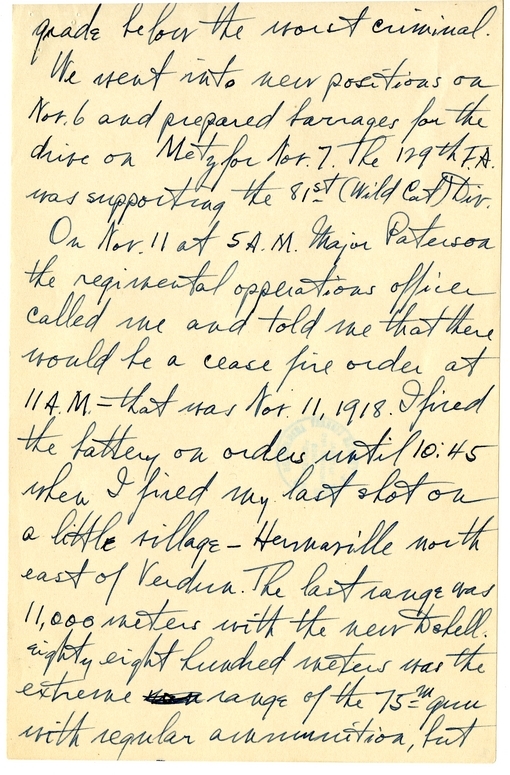 grade below the worst criminal.
We went into new positions on
Nov. 6 and prepared barrages for the
drive on Metz for Nov. 7. The 129th F.A.
was supporting the 81st (Wild Cat) Div.
On Nov. 11 at 5 A.M. Major Paterson
the regimental opperations officer
called me and told me that there
would be a cease fire order at
11 A.M. – that was Nov. 11, 1918. I fired
the battery on orders until 10:45
when I fired my last shot on
a little village – Hermaville north
east of Verdun. The last range was
11,000 meters with the new D shell.
eighty eight hundred meters was the
extreme range of the 75 m gun
with regular ammunition, but